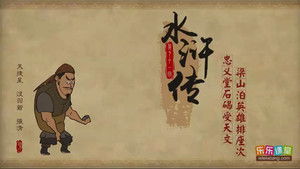 水浒传
梁山泊英雄排座次
忠义堂石碣受天文
天捷星 没羽箭 张清
乐乐课堂